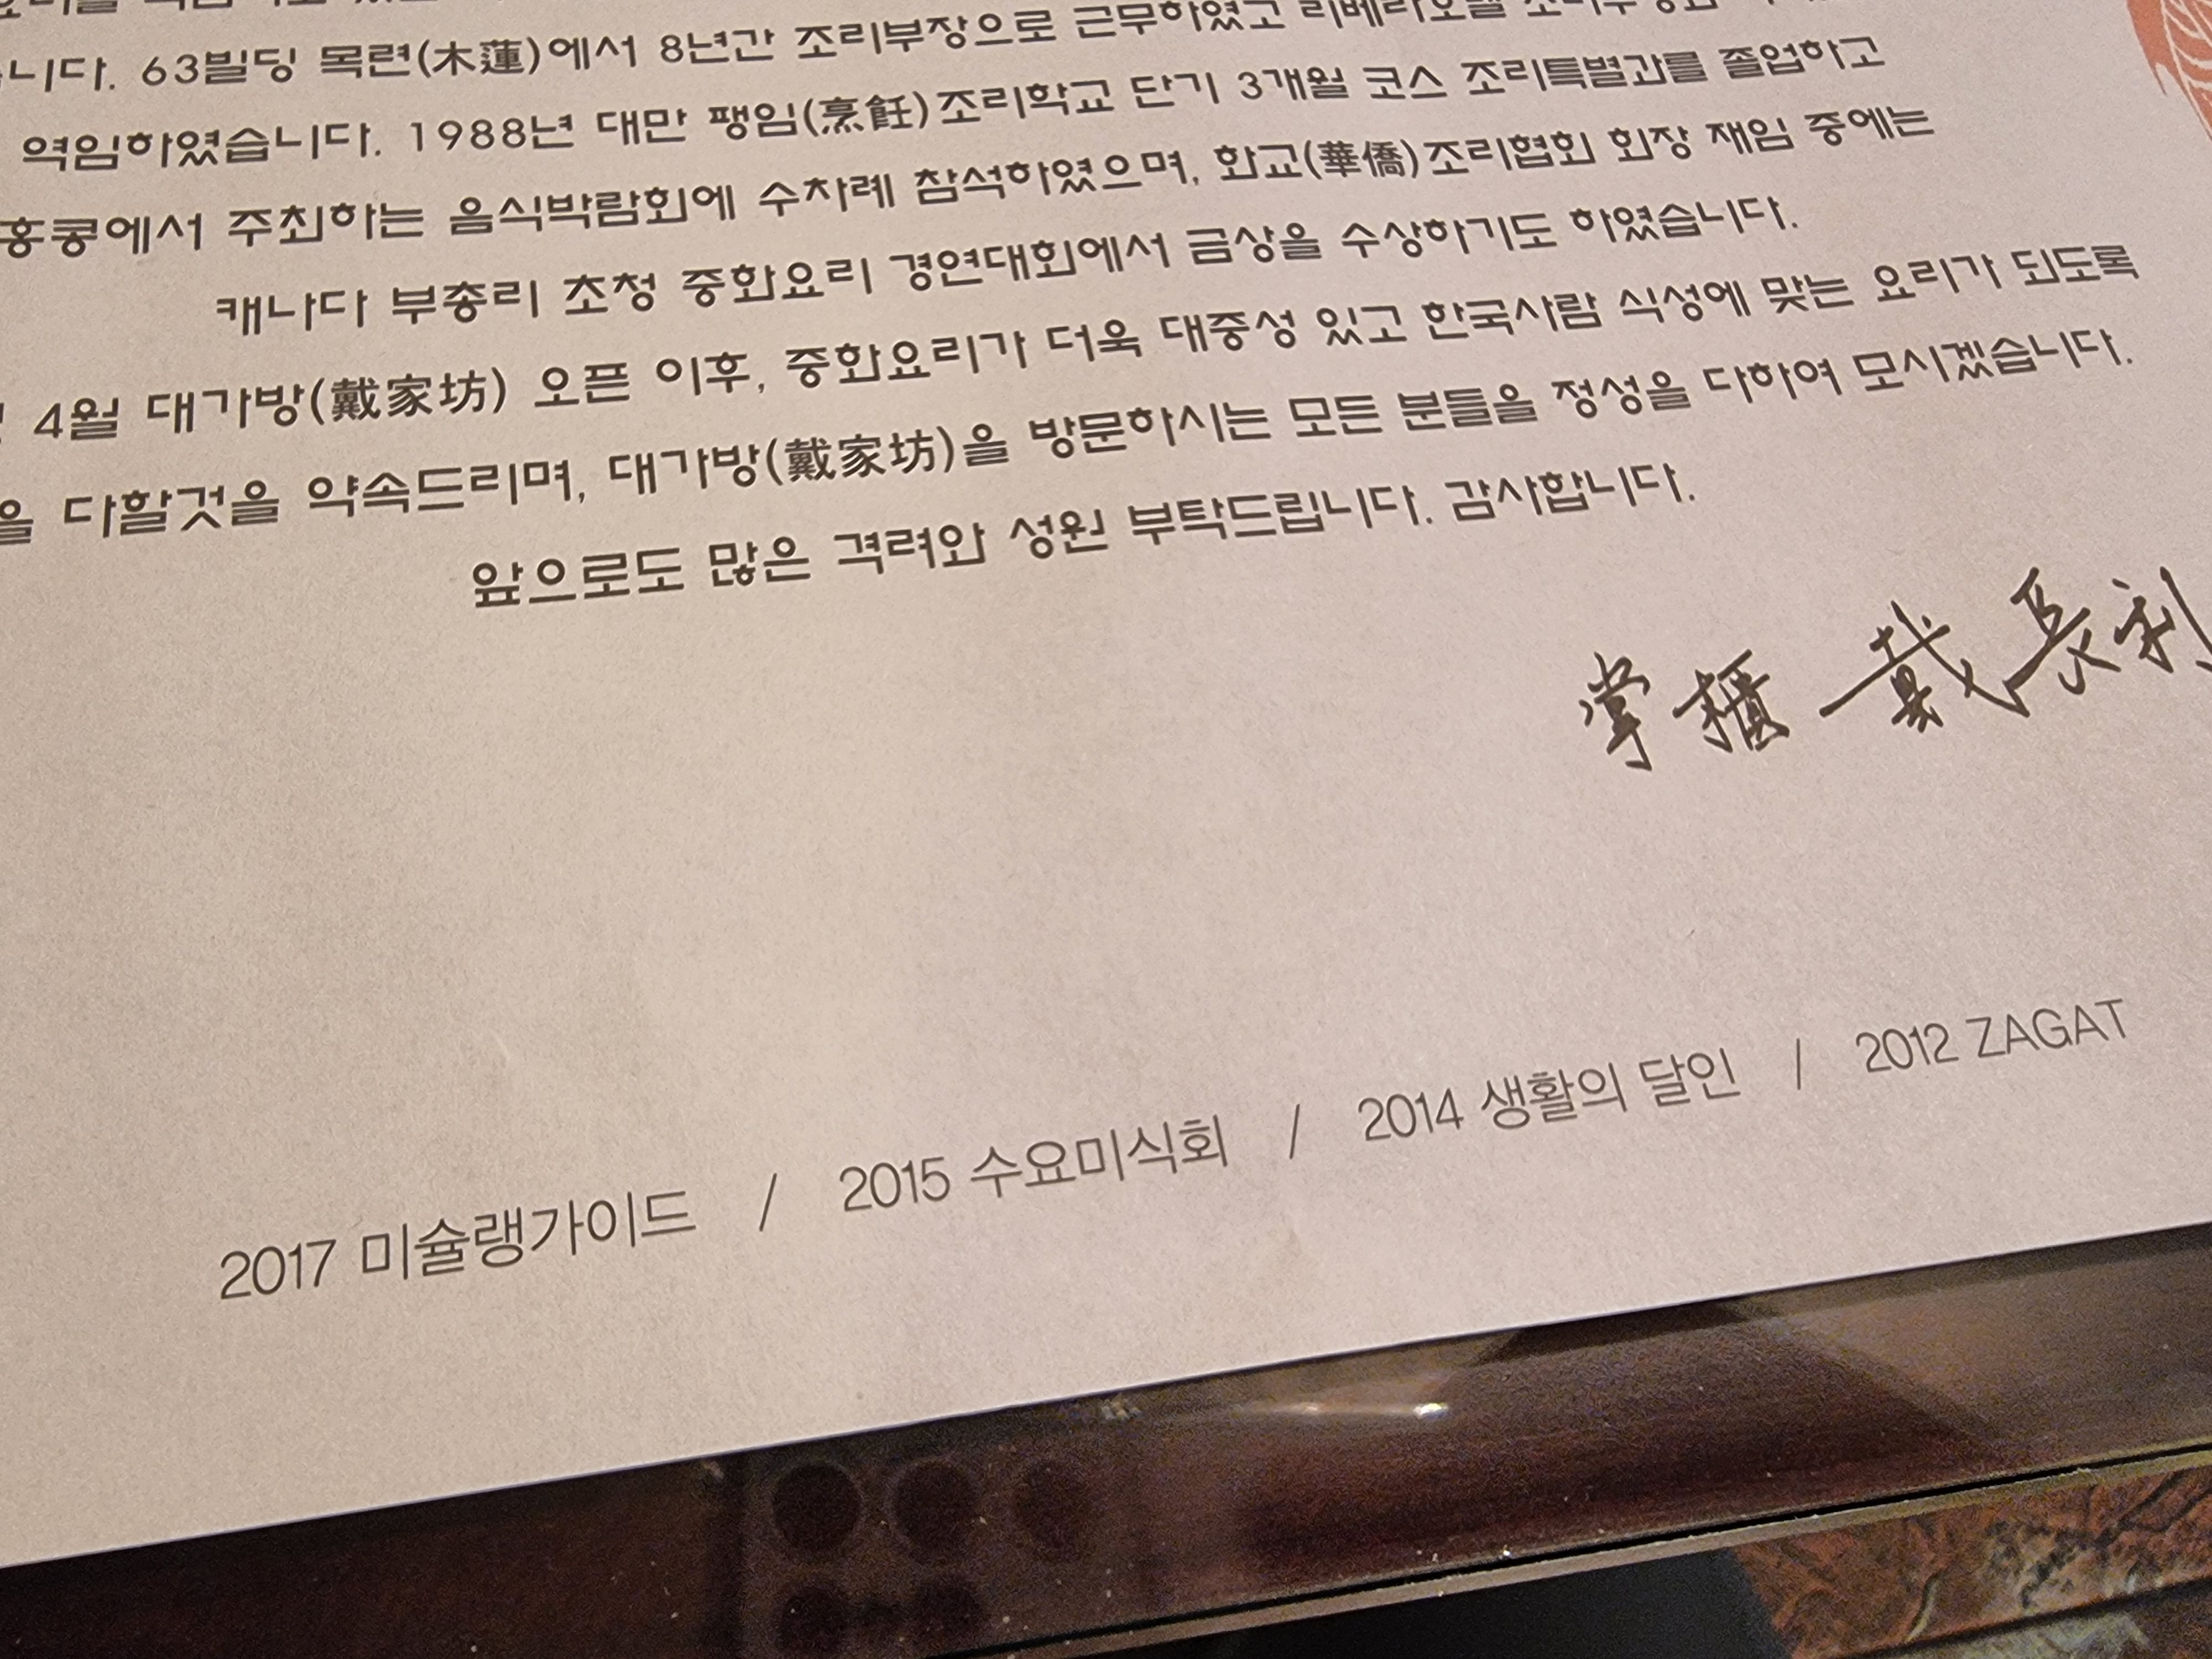 니다. 63빌딩 목련(木蓮)에서 8년간 조리부장으로 근무하였고 리베라호텔
역임하였습니다. 1988년 대만 팽임(烹飪)조리학교 단기 3개월 코스 조리특별과를 졸업하고
홍콩에서 주최하는 음식박람회에 수차례 참석하였으며, 화교(華僑)조리협회 회장 재임 중에는
캐나다 부총리 초청 중화요리 경연대회에서 금상을 수상하기도 하였습니다.
4월 대가방(戴家坊) 오픈 이후, 중화요리가 더욱 대중성 있고 한국사람 식성에 맞는 요리가 되도록
을 다할것을 약속드리며, 대가방(戴家坊)을 방문하시는 모든 분들을 정성을 다하여 모시겠습니다.
앞으로도 많은 격려와 성원 부탁드립니다. 감사합니다.
掌櫃 戴長利
2017 미슐랭가이드 / 2015 수요미식회 / 2014 생활의 달인 / 2012 ZAGAT